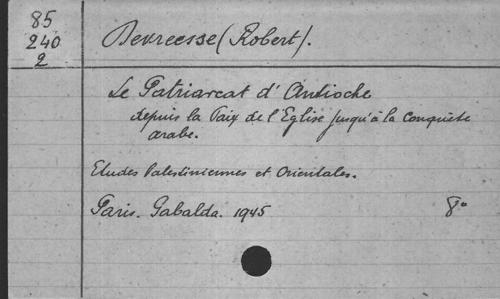 85
240
2
Devreesse (Robert).
Le Patriarcat d'Antioche
depuis la Paix de l'Eglise jusqu'à la conquête
arabe.
Etudes Palestiniennes et Orientales.
Paris. Gabalda. 1945 8°